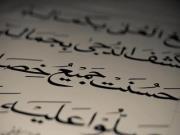 العلى بكماله
كشف الدجى بجماله
حَسُنَتْ جَمِيْعُ خِصَا
لوا عَلَيْهِ